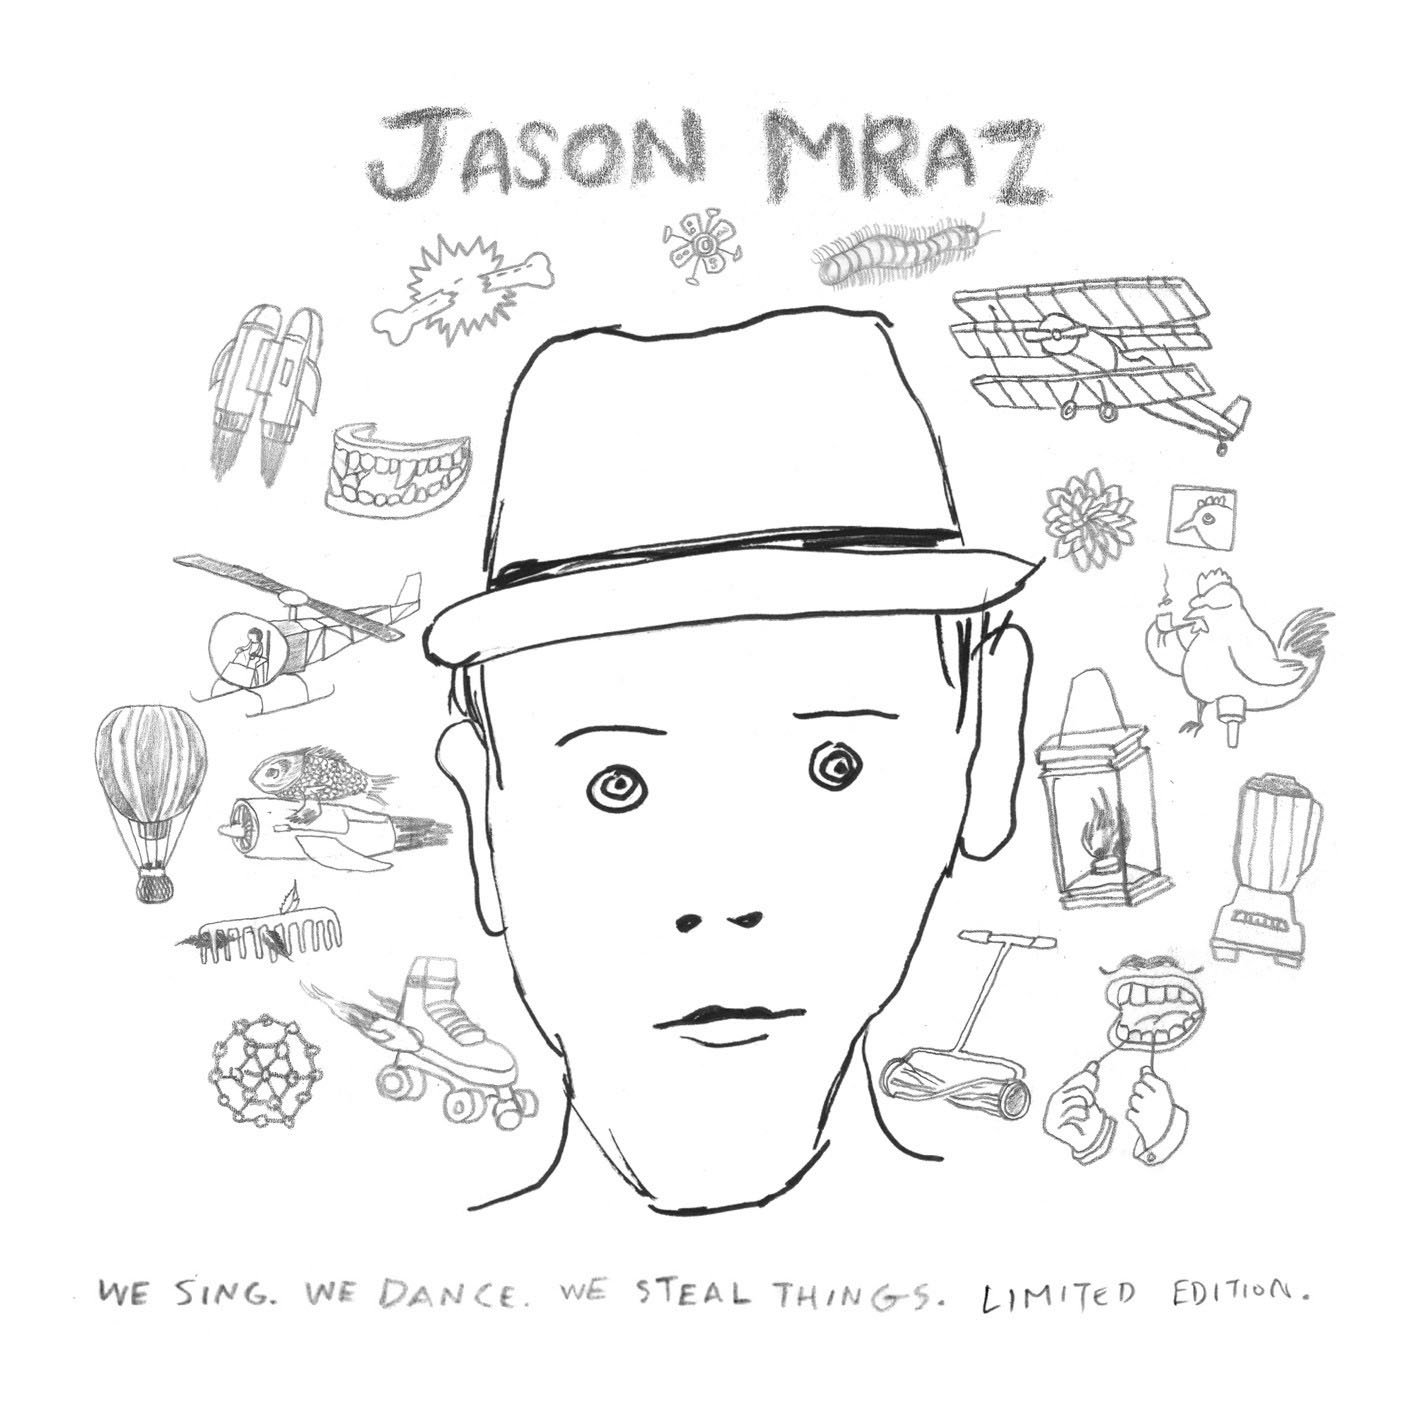 JASON MRAZ
WE SING. WE DANCE. WE STEAL THINGS. LIMITED EDITION.